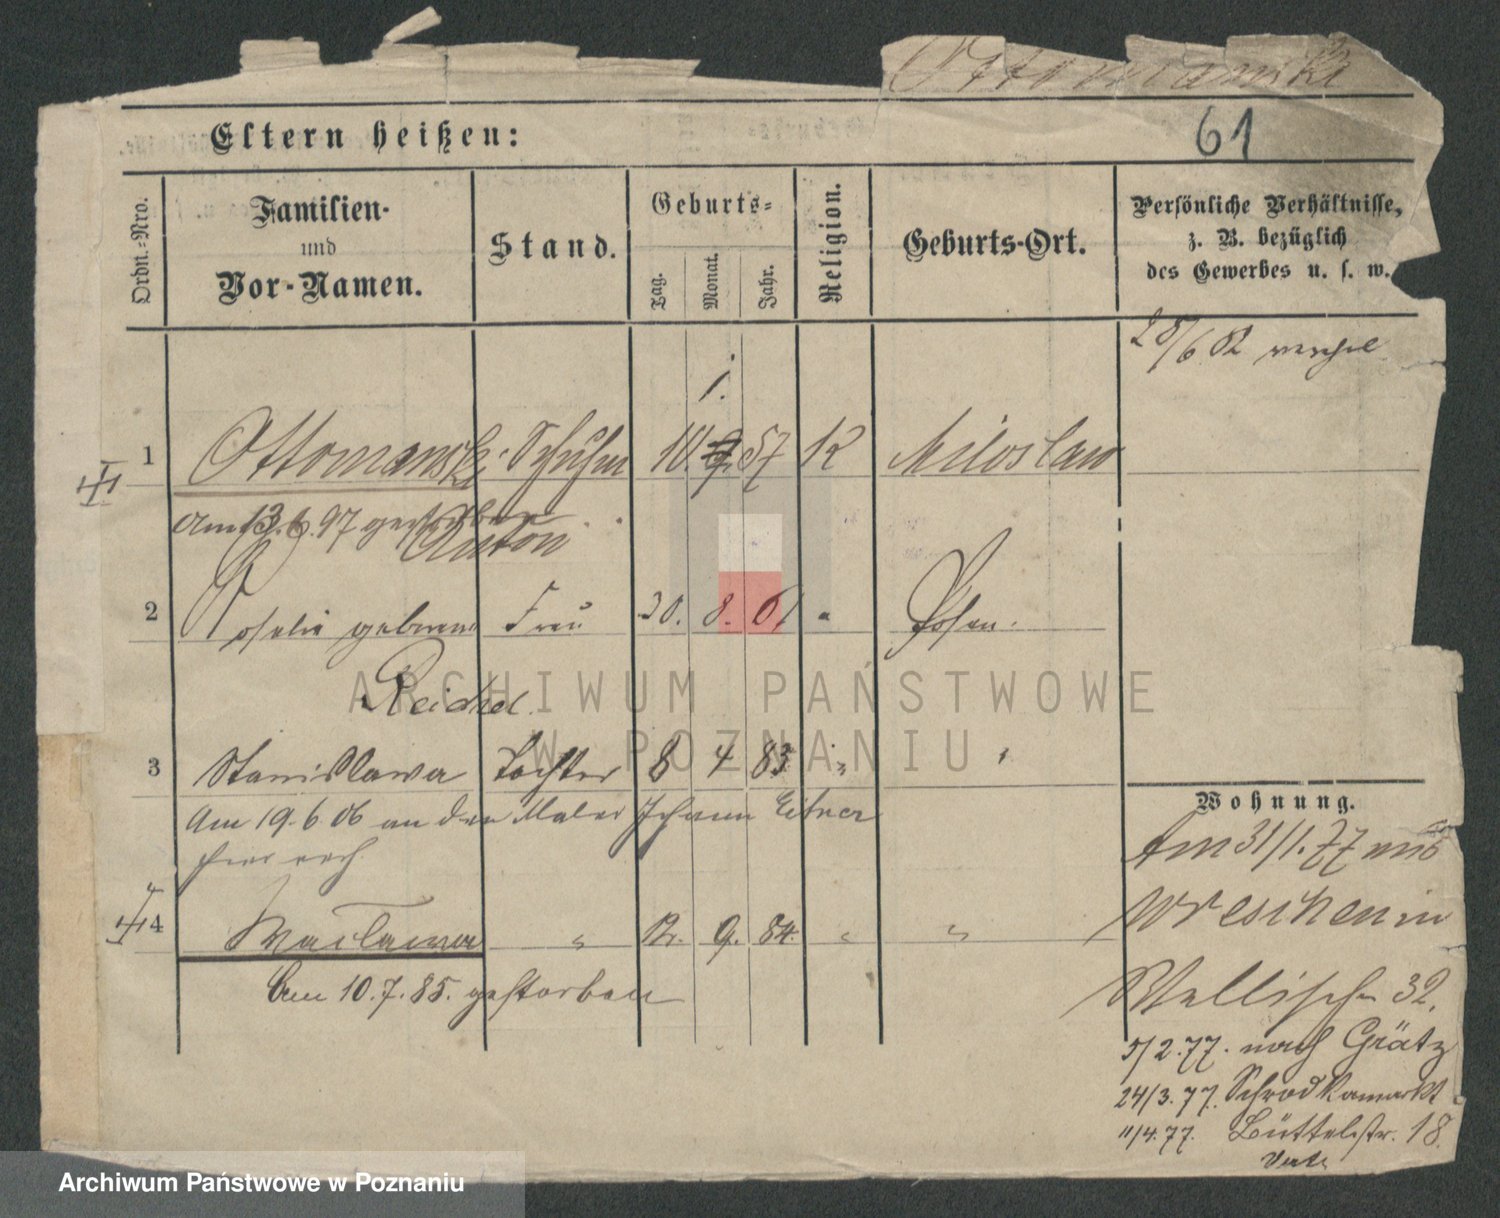 Ottomanski
Eltern heißen:
61
Ordn.-Nro.
Familien-
und
Vor-Namen.
Stand.
Geburts-
Tag.
Monat.
Jahr.
Religion.
Geburts-Ort.
Persönliche Verhältnisse,
z. B. bezüglich
des Gewerbes u. s. w.
28/6 82
1.
1 Ottomanski Schuhm 10. 9. 57 K Miloslaw
Am 13.6.97 gestorben
Anton
2 Roselie geborene Frau 30. 8. 61 " Posen.
Reichel
3 Stanislawa Tochter 8 4 83 " "
Am 19.6 06 an den Maler Johann Eitner
4 Waclawa " 12. 9. 84. " "
Am 10.7.85. gestorben
Wohnung.
Am 31/1.77 aus
Wreschen in
Wallische 32.
5/2.77. nach Grätz
24/3.77. Schrodkamarkt
11/4.77. Büttelstr. 18.
ARCHIWUM PAŃSTWOWE
W POZNANIU
Archiwum Państwowe w Poznaniu